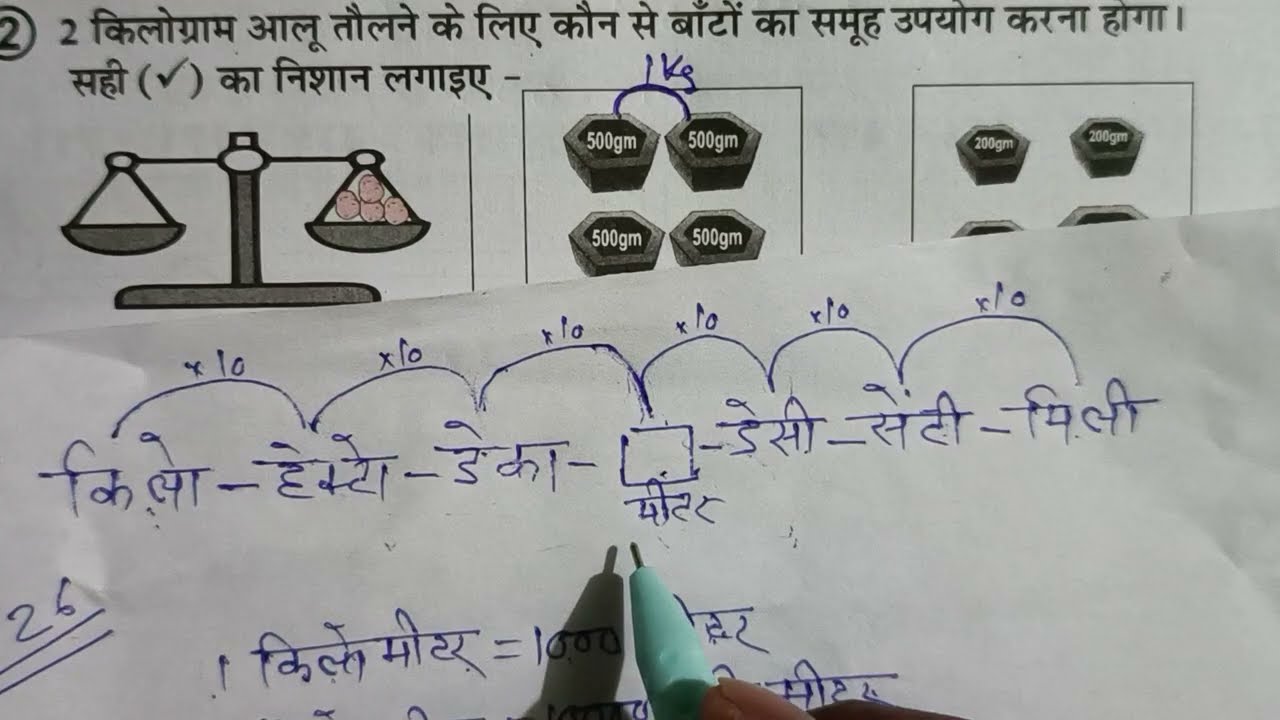 2 2 किलोग्राम आलू तौलने के लिए कौन से बाँटों का समूह उपयोग करना होगा।
सही (✓) का निशान लगाइए -
1 Kg
500gm 500gm
200gm 200gm
500gm 500gm
×10 ×10 ×10 ×10 ×10 ×10
किलो - हेक्टो - डेका - □ - डेसी - सेंटी - मिली
मीटर
26
1 किलो मीटर = 1000
मीटर